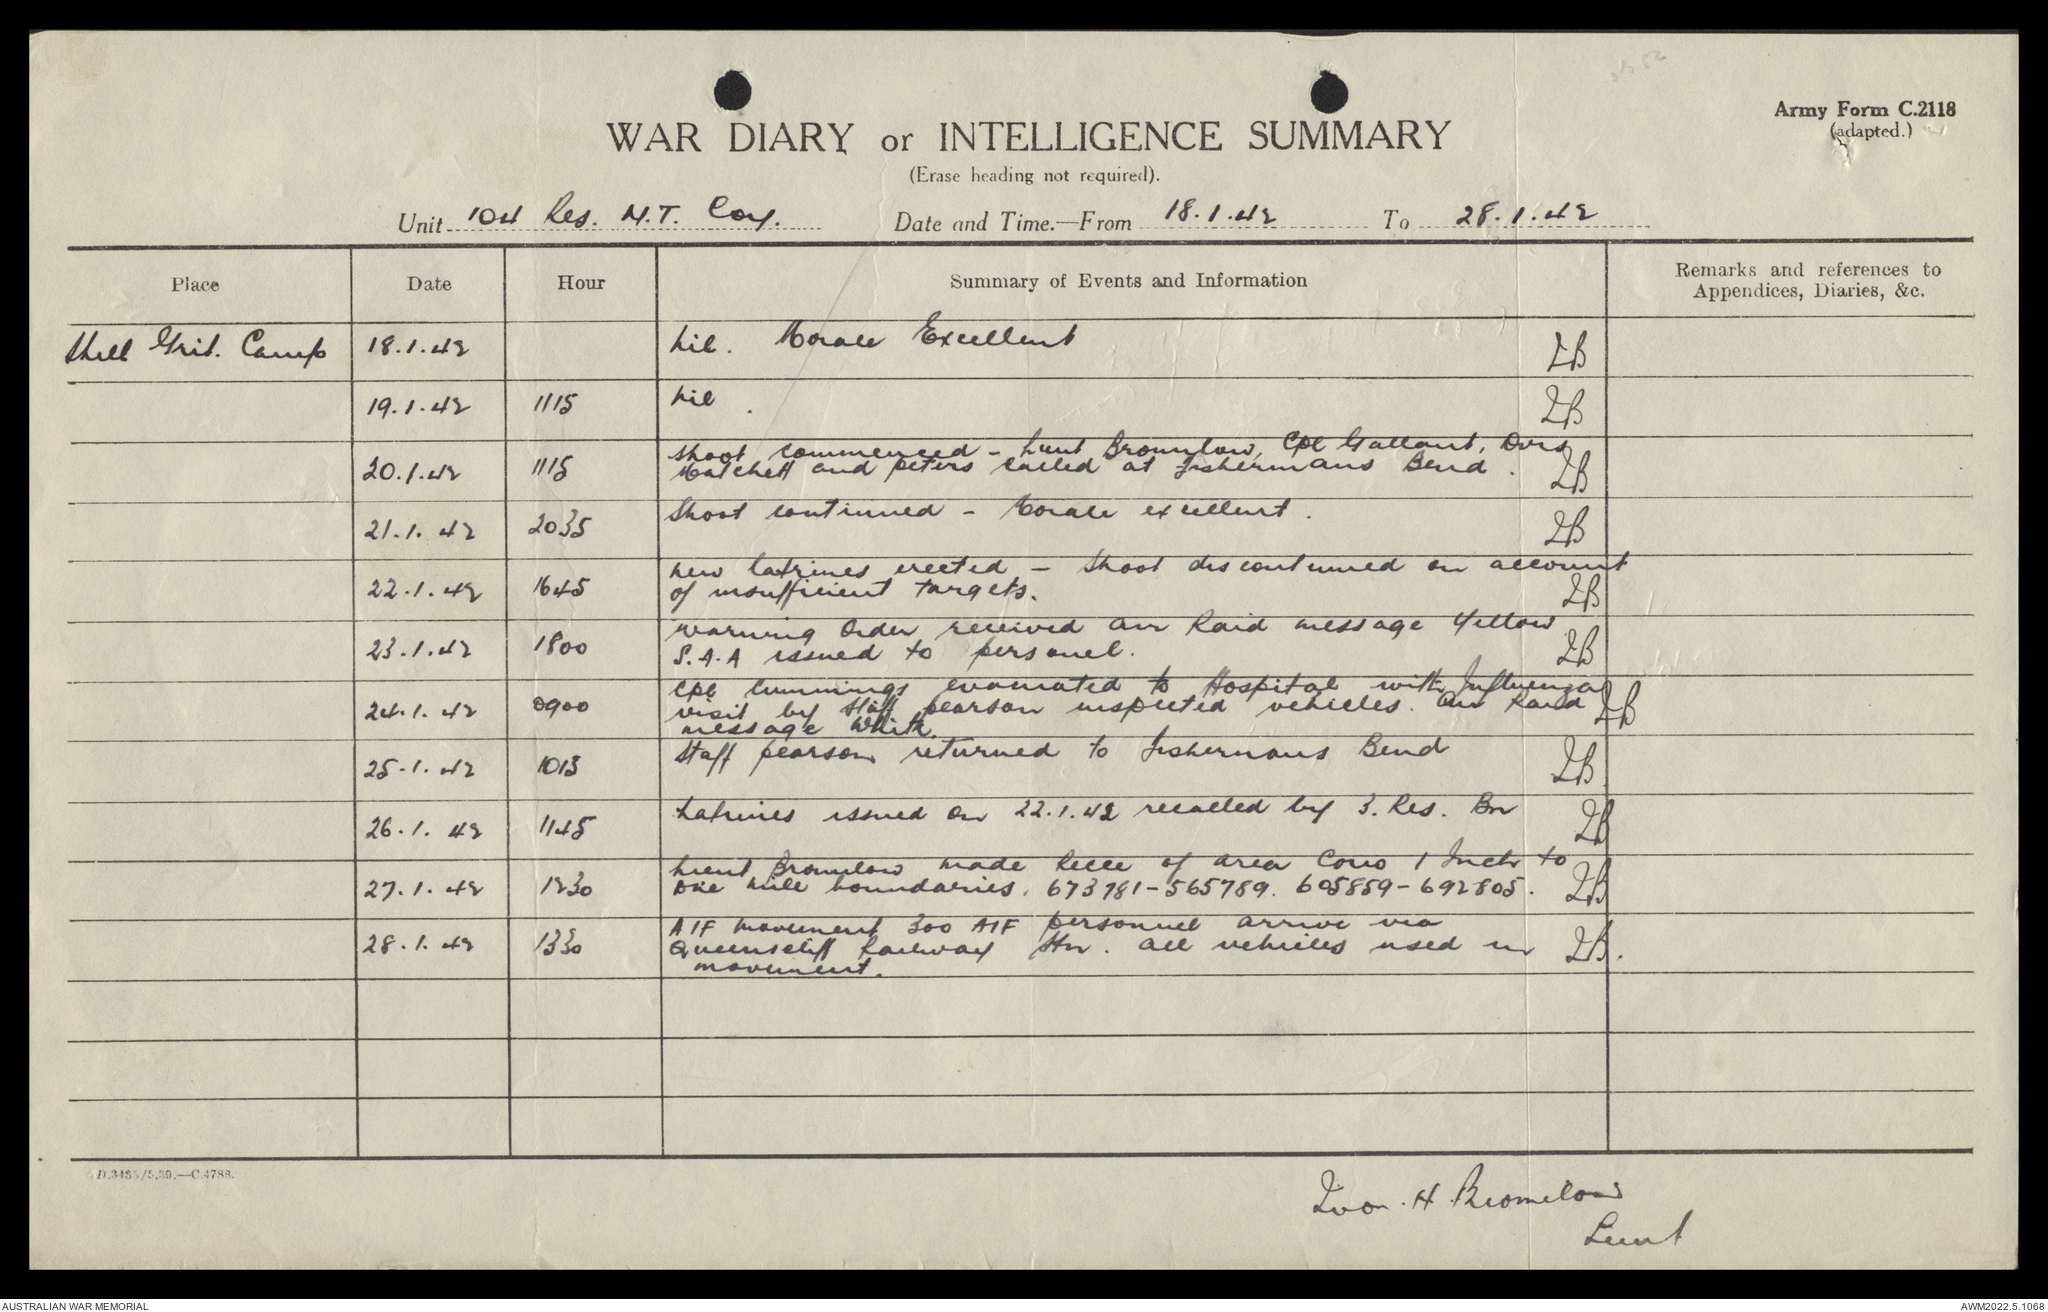 Army Form C.2118
(adapted.)
WAR DIARY or INTELLIGENCE SUMMARY
(Erase heading not required).
Unit 104 Res. M.T. Coy. Date and Time.—From 18.1.42 To 28.1.42
Place Date Hour Summary of Events and Information Remarks and references to
Appendices, Diaries, &c.
Shell Grit. Camp 18.1.42 Nil. Morale Excellent IB
19.1.42 1115 Nil. IB
20.1.42 1115 Shoot commenced - Lieut Bromilow, Cpl Gallant, Dvrs
Matchett and Peters called at Fishermans Bend. IB
21.1.42 2035 Shoot continued - Morale excellent. IB
22.1.42 1645 New latrines erected - Shoot discontinued on account
of insufficient targets. IB
23.1.42 1800 Warning Order received Air Raid message Yellow
S.A.A issued to personel. IB
24.1.42 0900 Cpl Cummings evacuated to Hospital with Influenza
visit by Staff Pearson inspected vehicles. Air Raid IB
message White.
25.1.42 1015 Staff Pearson returned to Fishermans Bend IB
26.1.42 1145 Latrines issued on 22.1.42 recalled by 3. Res. Bn IB
27.1.42 1230 Lieut Bromilow made Recce of area 1 Inch to
one mile boundaries. 673781-565789. 605859-692805. IB
28.1.42 1330 AIF movement 300 AIF personnel arrive via
Queenscliff Railway Stn. all vehicles used in IB.
movement.
D.3435/5.39.—C.4788.
Ivor. H. Bromilow
Lieut
AUSTRALIAN WAR MEMORIAL
AWM2022.5.1068